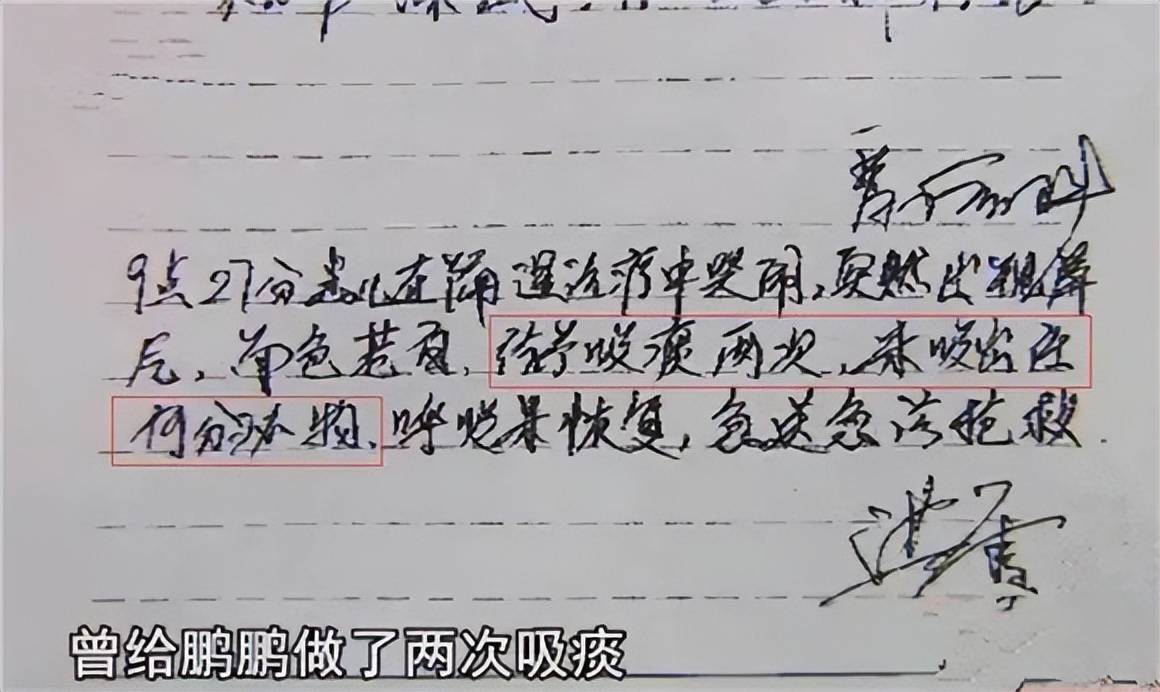 9点27分患儿在 治疗中哭闹,突然出现屏
气,面色苍白,给予吸痰两次,未吸出任
何分泌物,呼吸未恢复,急送急诊抢救.
曾给鹏鹏做了两次吸痰